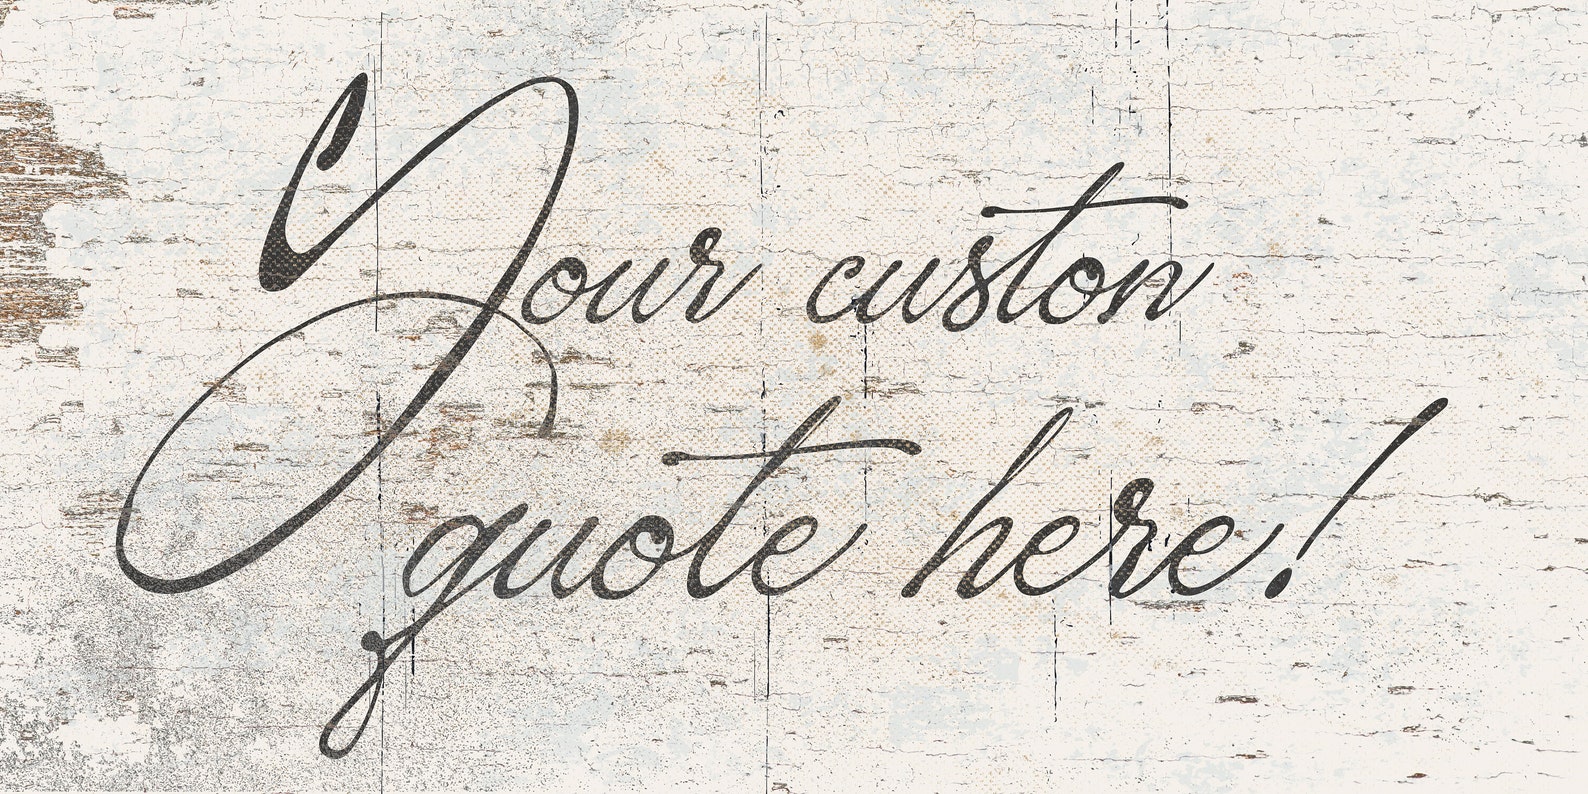 Your custon
quote here!